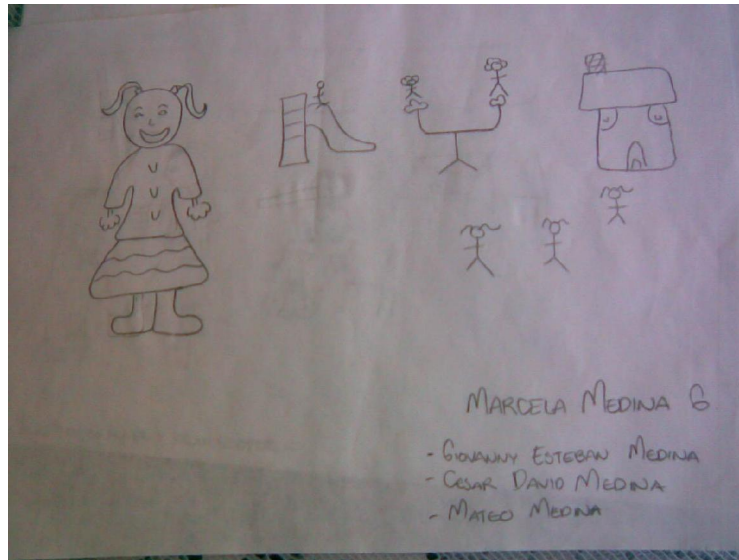 MARCELA MEDINA G
- GIOVANNY ESTEBAN MEDINA
- CESAR DAVID MEDINA
- MATEO MEDINA